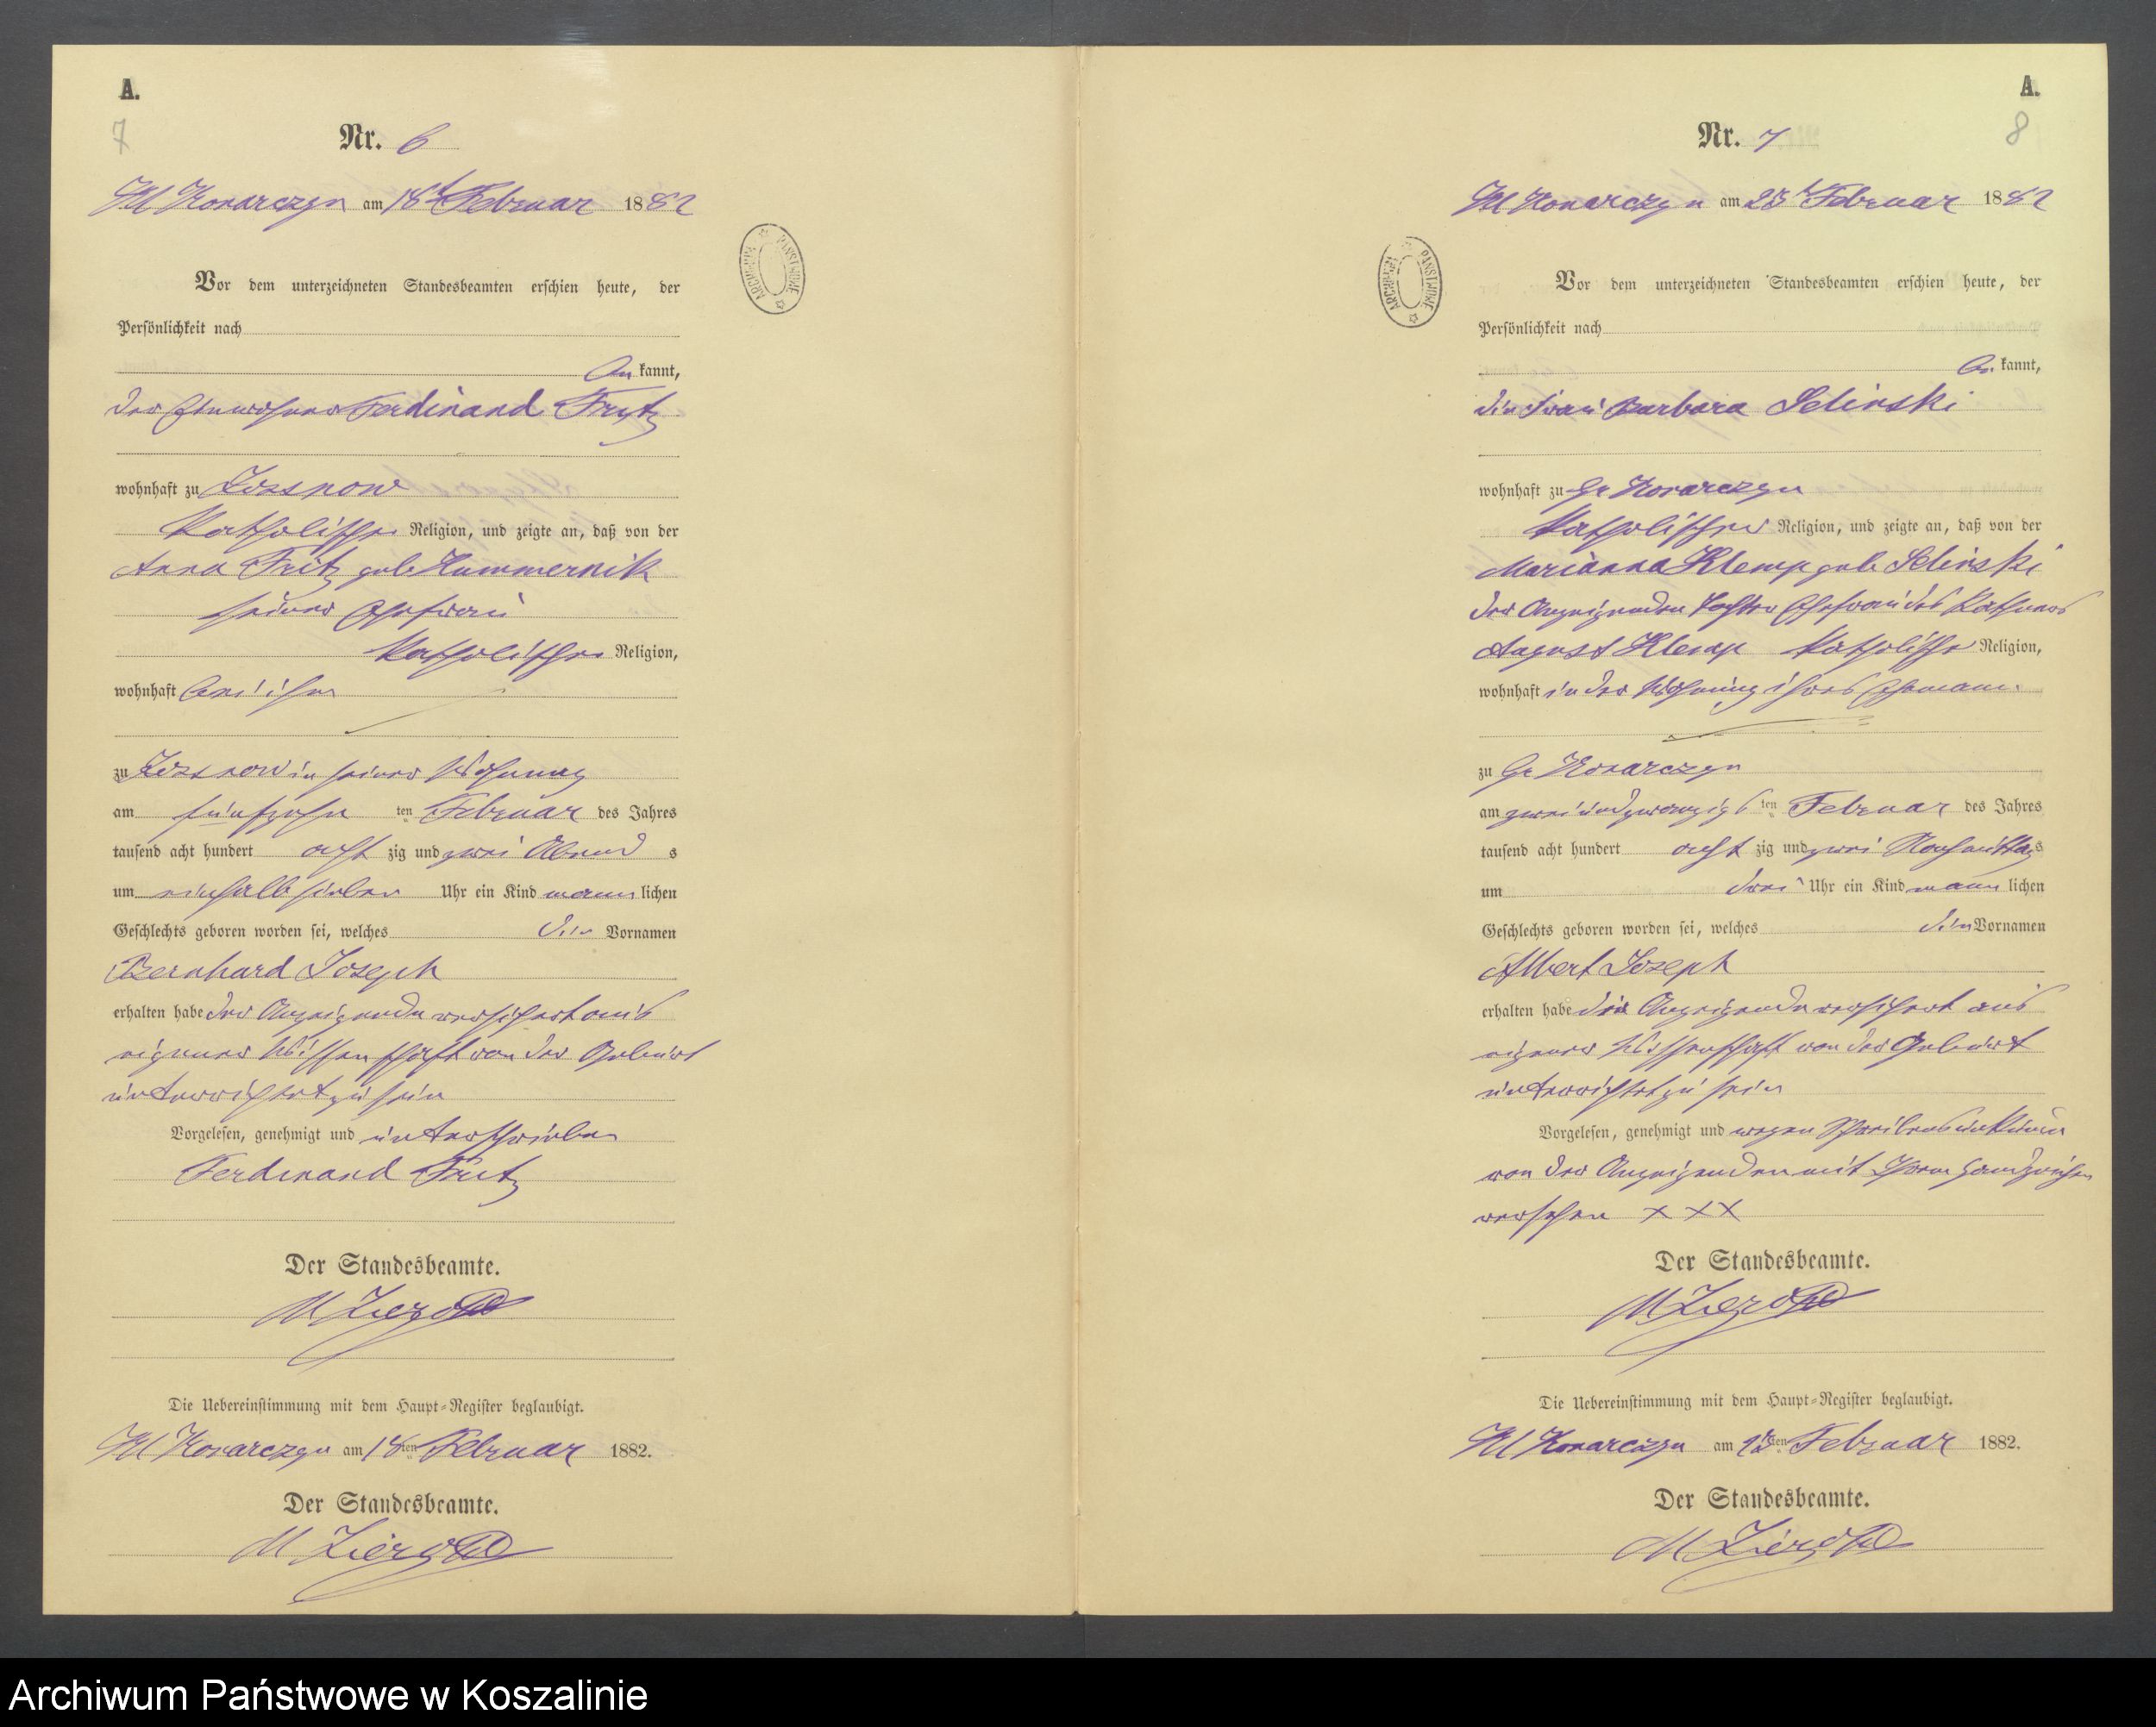 A.
7
Nr. 6
Kl Konarczyn am 18t Februar 1882
ARCHIWUM PAŃSTWOWE
Vor dem unterzeichneten Standesbeamten erschien heute, der
Persönlichkeit nach
be kannt,
der Einwohner Ferdinand Frytz
wohnhaft zu
Katholischer Religion, und zeigte an, daß von der
Anna Fritz geb. Hummernik
seiner Ehefrau
Katholischer Religion,
wohnhaft bei ihm
zu in seiner Wohnung
am fünfzehn ten Februar des Jahres
tausend acht hundert acht zig und zwei Abend s
um einhalb sieben Uhr ein Kind mann lichen
Geschlechts geboren worden sei, welches die Vornamen
Bernhard Joseph
erhalten habe der Anzeigende versichert aus
eigener Wissenschaft von der Geburt
unterrichtet zu sein
Vorgelesen, genehmigt und unterschrieben
Ferdinand Fritz
Der Standesbeamte.
Die Uebereinstimmung mit dem Haupt-Register beglaubigt.
Kl Konarczyn am 18ten Februar 1882.
Der Standesbeamte.
A.
8
Nr. 7
Kl Konarczyn am Februar 1882
ARCHIWUM PAŃSTWOWE
Vor dem unterzeichneten Standesbeamten erschien heute, der
Persönlichkeit nach
be kannt,
die Frau Barbara Selinski
wohnhaft zu Gr Konarczyn
Katholischer Religion, und zeigte an, daß von der
Marianna Klemp geb Selinski
der Anzeigenden Tochter Ehefrau des Kathners
August Klemp Katholischer Religion,
wohnhaft in der Wohnung ihres Ehemann
zu Gr Konarczyn
am zweiundzwanzigs ten Februar des Jahres
tausend acht hundert acht zig und zwei Nachmittag s
um drei Uhr ein Kind mann lichen
Geschlechts geboren worden sei, welches die Vornamen
Albert Joseph
erhalten habe die Anzeigende versichert aus
eigener Wissenschaft von der Geburt
unterrichtet zu sein
Vorgelesen, genehmigt und wegen
von der Anzeigenden mit Ihrem Handzeichen
versehen XXX
Der Standesbeamte.
Die Uebereinstimmung mit dem Haupt-Register beglaubigt.
Kl Konarczyn am Februar 1882.
Der Standesbeamte.
Archiwum Państwowe w Koszalinie